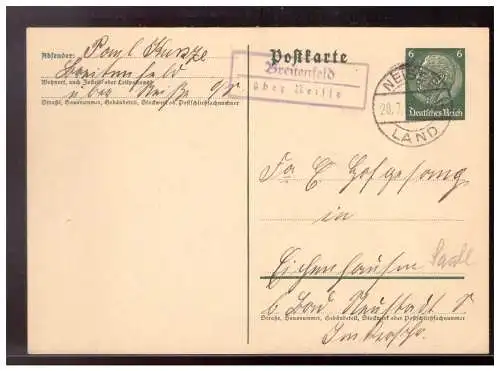 Absender: Paul Kunze
Breitenfeld
Wohnort, auch Zustell- oder Leitpostamt
über Neiße O/S
Straße, Hausnummer, Gebäudeteil, Stockwerk od. Postschließfachnummer
Postkarte
Breitenfeld
über Neisse
NEISSE
20.7.
LAND
6 6
Deutsches Reich
Fa
in
Eichenhausen Saale
b. Bad Neustadt
Straße, Hausnummer, Gebäudeteil, Stockwerk oder Postschließfachnummer